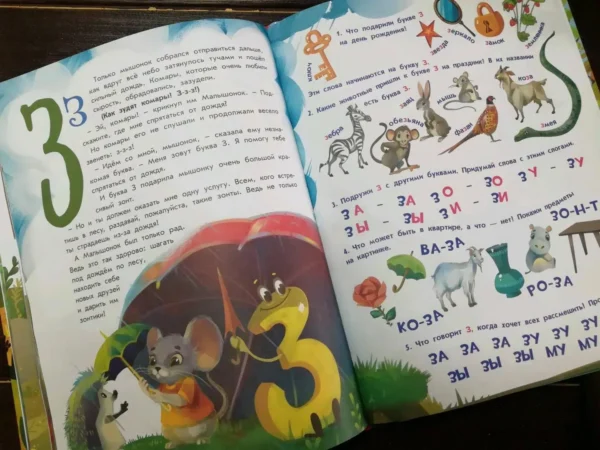 З
З
Только мышонок собрался отправиться дальше,
как вдруг всё небо затянулось тучами и пошёл
сильный дождь. Комары, которые очень любили
сырость, обрадовались, зазудели.
(Как зудят комары? З-з-з!)
– Эй, комары! – крикнул им Малышонок. – Под-
скажите, где мне спрятаться от дождя!
Но комары его не слушали и продолжали весело
звенеть: з-з-з!
– Идём со мной, мышонок, – сказала ему незна-
комая буква. – Меня зовут буква З. Я помогу тебе
спрятаться от дождя.
И буква З подарила мышонку очень большой кра-
сивый зонт.
– Но и ты должен оказать мне одну услугу. Всем, кого встре-
тишь в лесу, раздавай, пожалуйста, такие зонты. Ведь не только
ты страдаешь из-за дождя!
А Малышонок был только рад.
Ведь это так здорово: шагать
под дождём по лесу,
находить себе
новых друзей
и дарить им
зонтики!
1. Что подарили букве З
на день рождения?
ключ
звезда
зеркало
замок
земляника
Эти слова начинаются на букву З.
2. Какие животные пришли к букве З на праздник? В их названии
есть буква З.
зебра
обезьяны
заяц
мышь
фазан
коза
змея
3. Подружи З с другими буквами. Придумай слова с этими слогами.
ЗА - ЗА ЗО - ЗО ЗУ - ЗУ
ЗЫ - ЗЫ ЗИ - ЗИ
4. Что может быть в квартире, а что — нет! Покажи предметы
на картинке.
ВА-ЗА
ЗО-Н-Т
КО-ЗА
РО-ЗА
5. Что говорит З, когда хочет всех рассмешить?
ЗА ЗА ЗА ЗУ ЗУ
ЗЫ ЗЫ ЗЫ МУ МУ